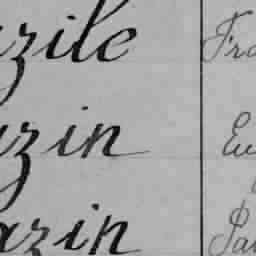 zile Fra
zin Eu
azin Pau